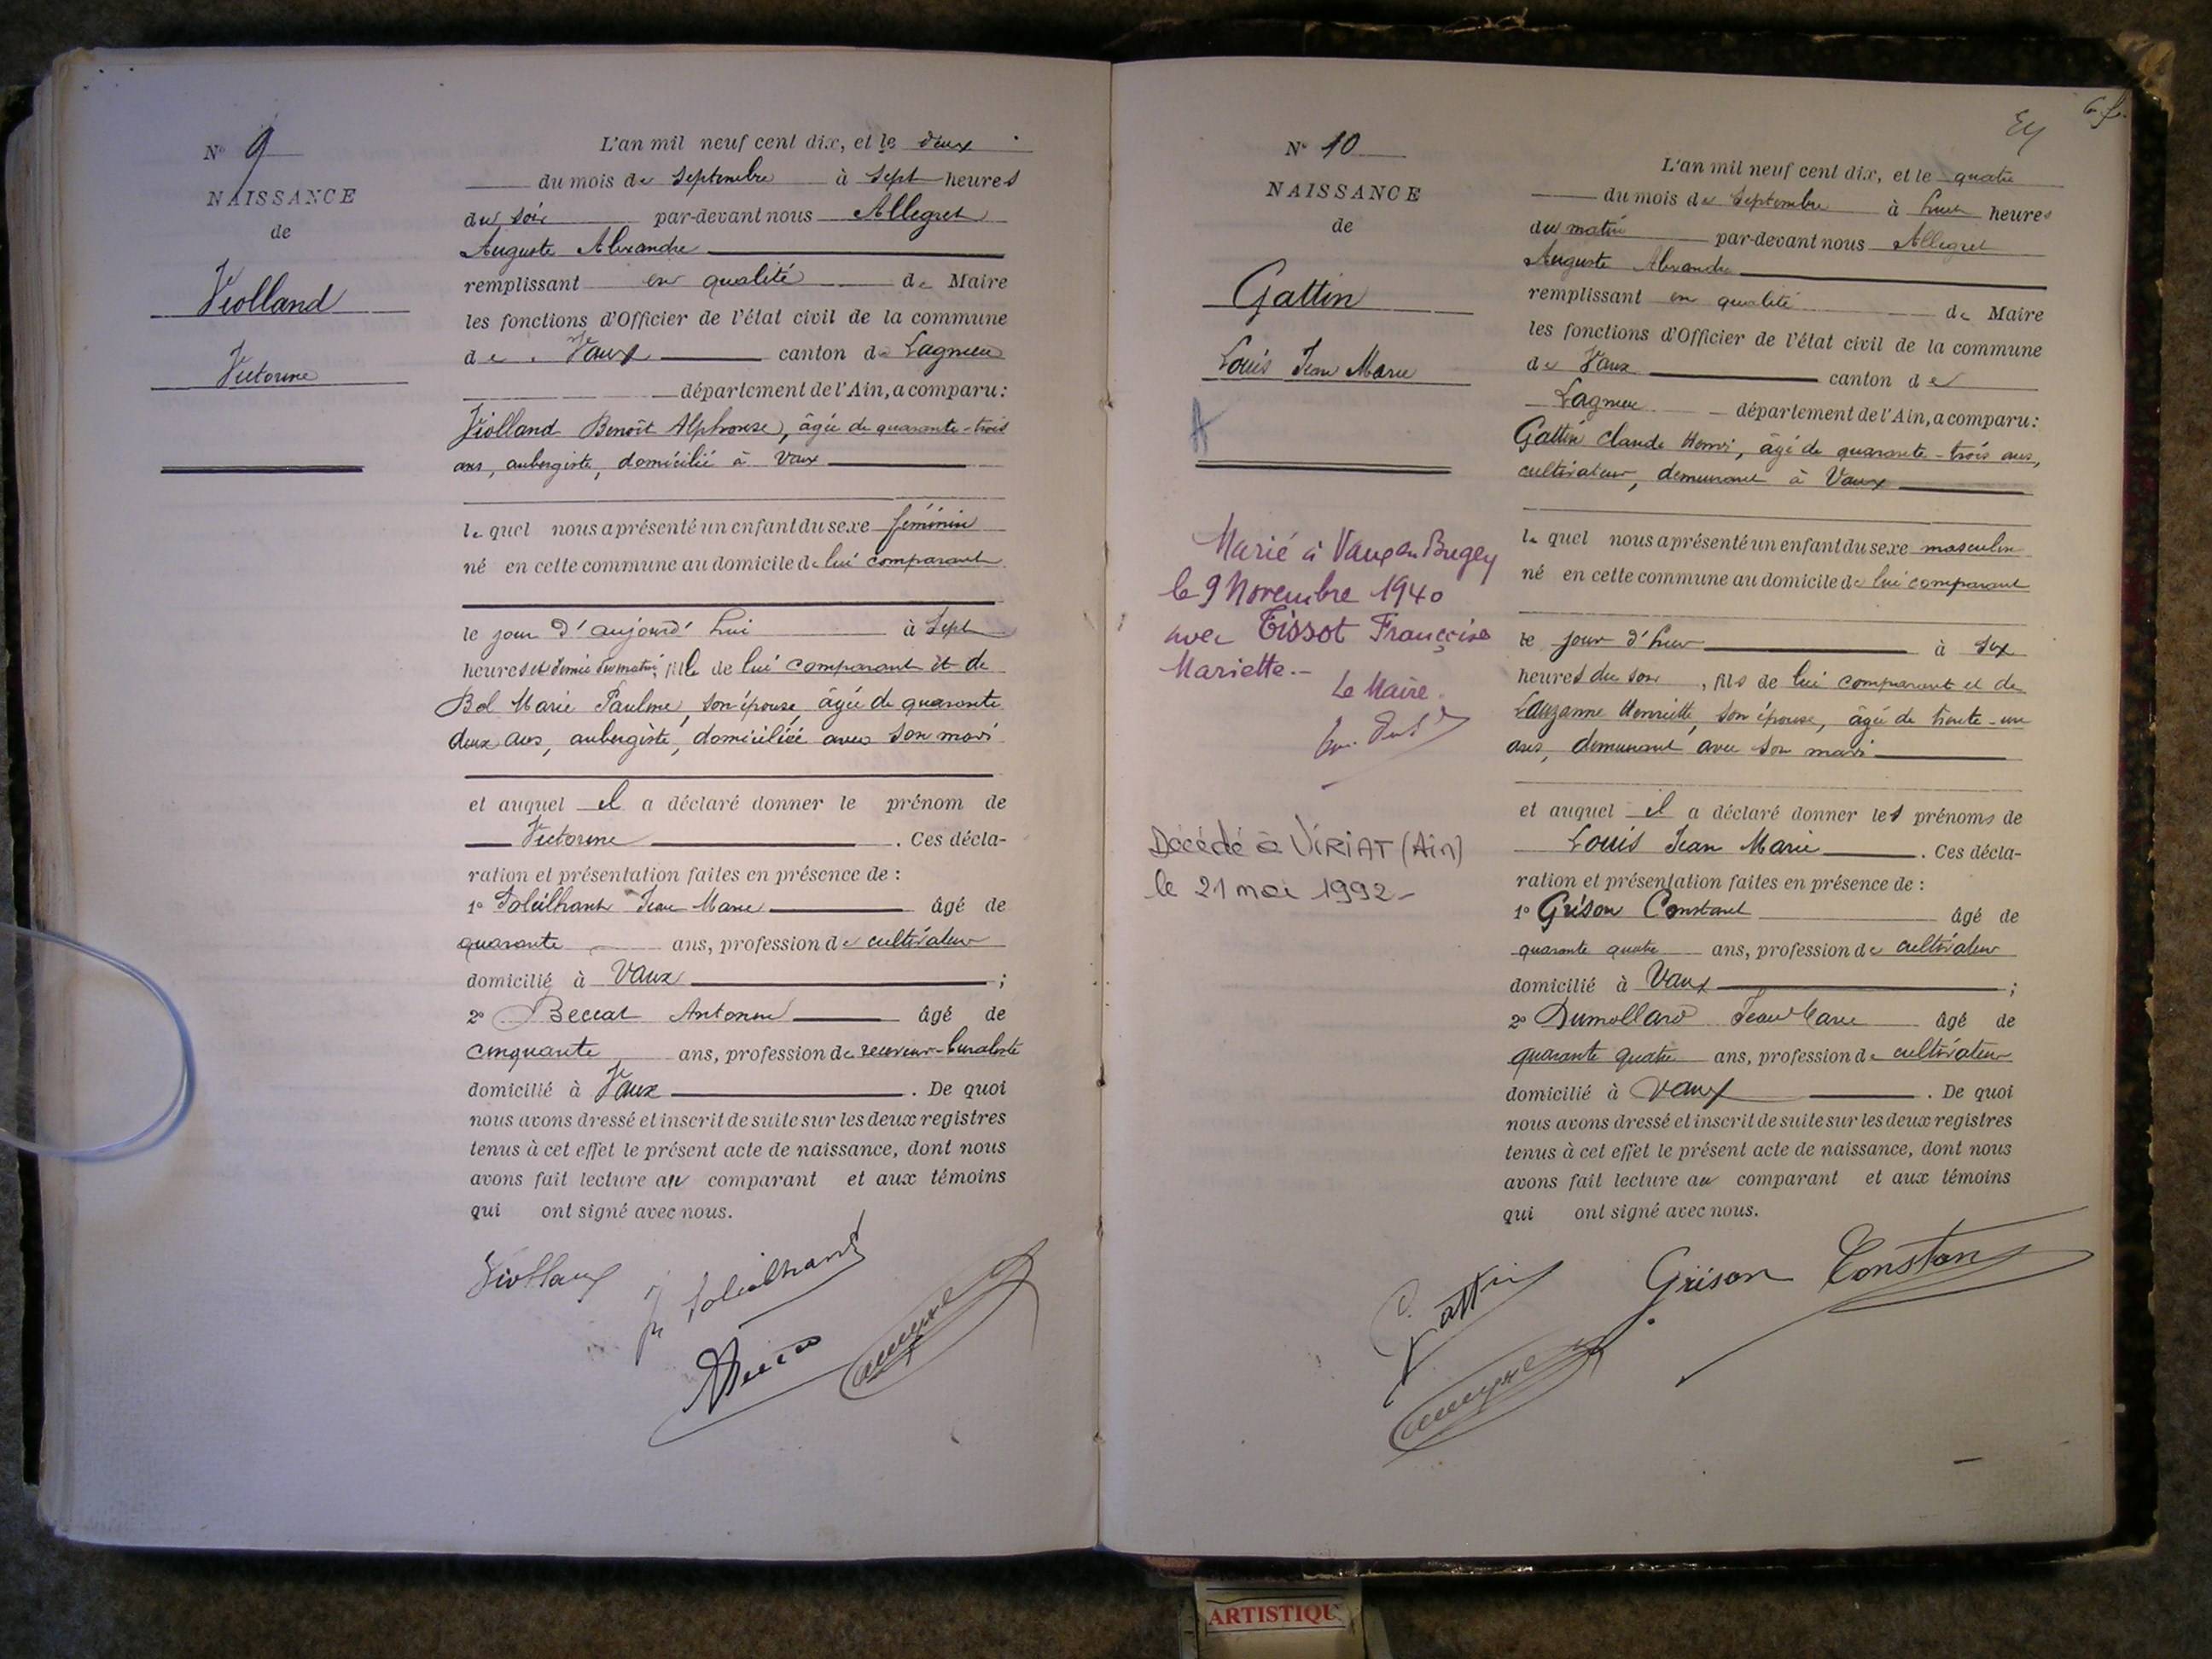 N° 9
NAISSANCE
de
Violland
Victorine
L'an mil neuf cent dix, et le deux
du mois de Septembre à Sept heures
du soir par-devant nous Allegret
Auguste Alexandre
remplissant en qualité de Maire
les fonctions d'Officier de l'état civil de la commune
de Vaux canton de Lagnieu
département de l'Ain, a comparu:
Violland Benoît Alphonse, âgé de quarante-trois
ans, aubergiste, domicilié à Vaux
lequel nous a présenté un enfant du sexe féminin
né en cette commune au domicile de lui comparant
le jour d'aujourd'hui à sept
heures et demie du matin, fille de lui comparant et de
Bol Marie Pauline, son épouse, âgée de quarante
deux ans, aubergiste, domiciliée avec son mari
et auquel il a déclaré donner le prénom de
Victorine. Ces décla-
ration et présentation faites en présence de :
1° Soleilhant Jean Marie âgé de
quarante ans, profession de cultivateur
domicilié à Vaux ;
2° Beccat Antonin âgé de
cinquante ans, profession de receveur-buraliste
domicilié à Vaux. De quoi
nous avons dressé et inscrit de suite sur les deux registres
tenus à cet effet le présent acte de naissance, dont nous
avons fait lecture au comparant et aux témoins
qui ont signé avec nous.
Violland
Soleilhant
N° 10
NAISSANCE
de
Gattin
Louis Jean Marie
Marié à Vaux en Bugey
le 9 Novembre 1940
avec Tissot Françoise
Mariette.-
Le Maire
Décédé à VIRIAT (Ain)
le 21 mai 1992-
L'an mil neuf cent dix, et le quatre
du mois de Septembre à huit heures
du matin par-devant nous Allegret
Auguste Alexandre
remplissant en qualité de Maire
les fonctions d'Officier de l'état civil de la commune
de Vaux canton de
Lagnieu département de l'Ain, a comparu:
Gattin Claude Henri, âgé de quarante-trois ans,
cultivateur, demeurant à Vaux
lequel nous a présenté un enfant du sexe masculin
né en cette commune au domicile de lui comparant
le jour d'hier à six
heures du soir, fils de lui comparant et de
Lauzanne Henriette, son épouse, âgée de trente-un
ans, demeurant avec son mari
et auquel il a déclaré donner les prénoms de
Louis Jean Marie. Ces décla-
ration et présentation faites en présence de :
1° Grison Constant âgé de
quarante quatre ans, profession de cultivateur
domicilié à Vaux ;
2° Dumollard Jean Marie âgé de
quarante quatre ans, profession de cultivateur
domicilié à Vaux. De quoi
nous avons dressé et inscrit de suite sur les deux registres
tenus à cet effet le présent acte de naissance, dont nous
avons fait lecture au comparant et aux témoins
qui ont signé avec nous.
Gattin
Grison Constant
ARTISTIQU